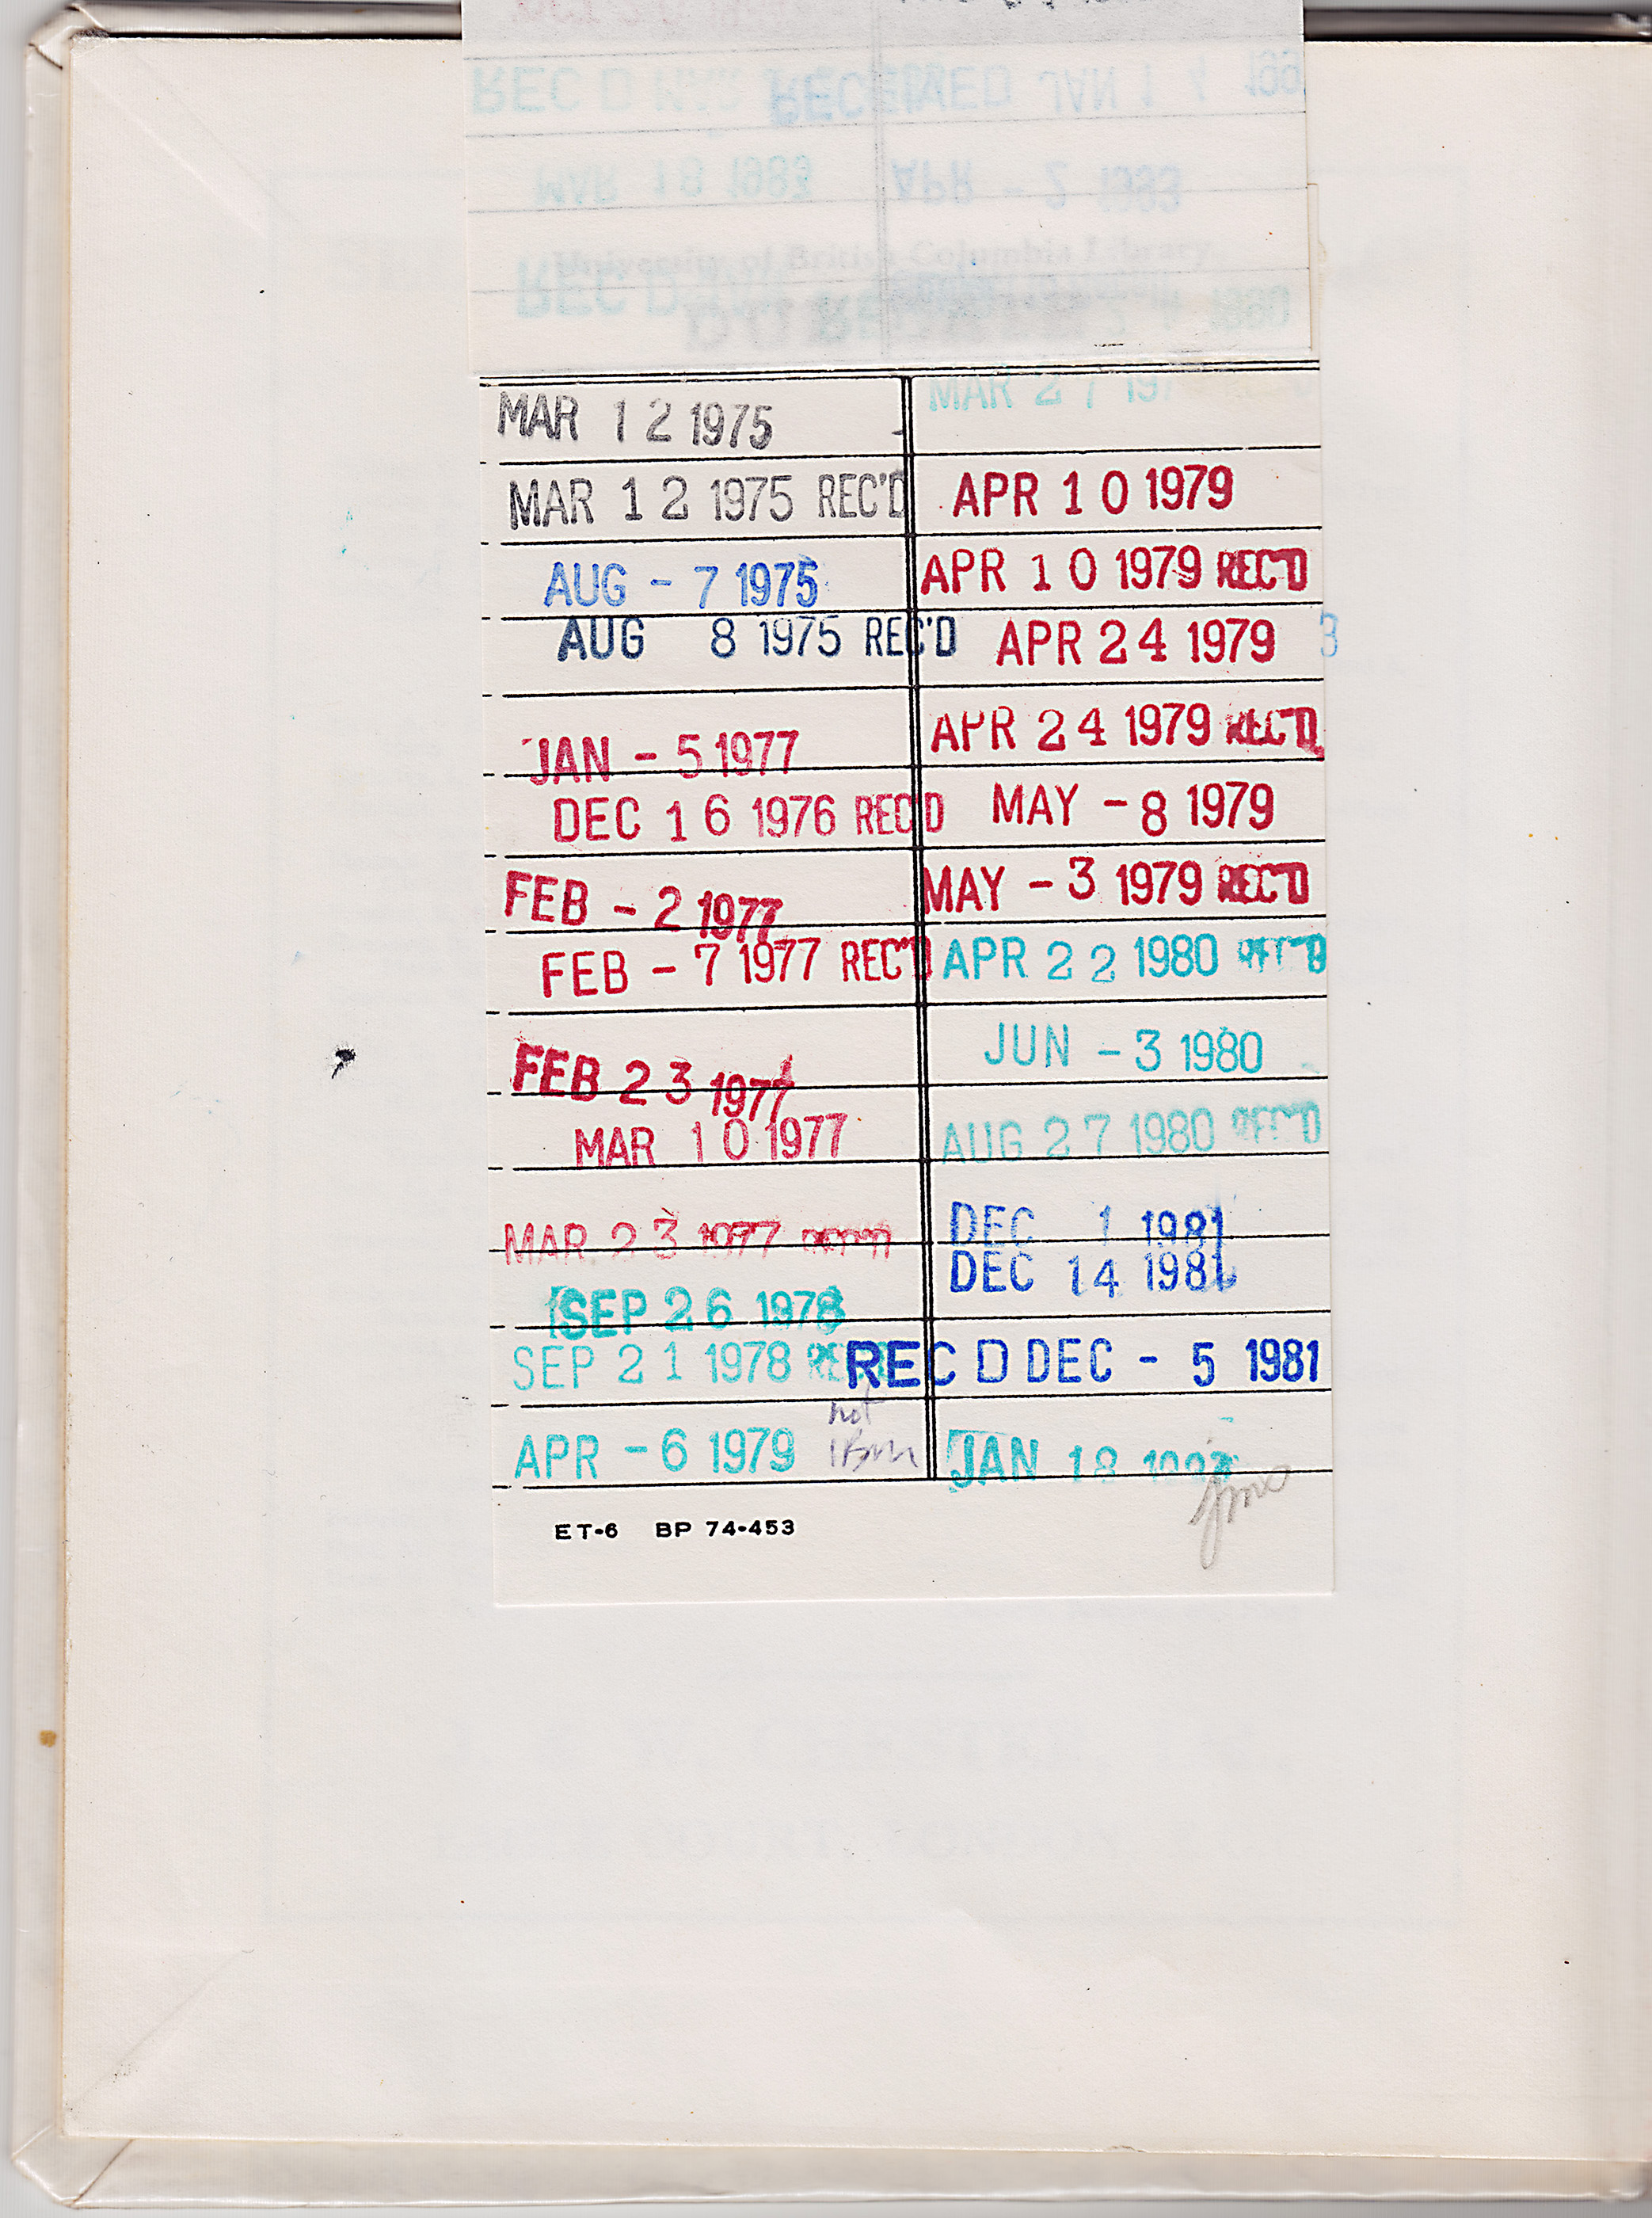 MAR 18 1983 APR - 2 1983
University of British Columbia Library
MAR 12 1975
MAR 12 1975 REC'D
AUG - 7 1975
AUG 8 1975 REC'D
JAN - 5 1977
DEC 16 1976 REC'D
FEB - 2 1977
FEB - 7 1977 REC'D
FEB 23 1977
MAR 10 1977
MAR 23 1977
SEP 26 1978
SEP 21 1978
APR - 6 1979
not
IBM
MAR 27
APR 10 1979
APR 10 1979 REC'D
APR 24 1979
APR 24 1979 REC'D
MAY - 8 1979
MAY - 3 1979 REC'D
APR 22 1980 REC'D
JUN - 3 1980
AUG 27 1980 REC'D
DEC 1 1981
DEC 14 1981
REC D DEC - 5 1981
JAN 18
ET-6 BP 74-453